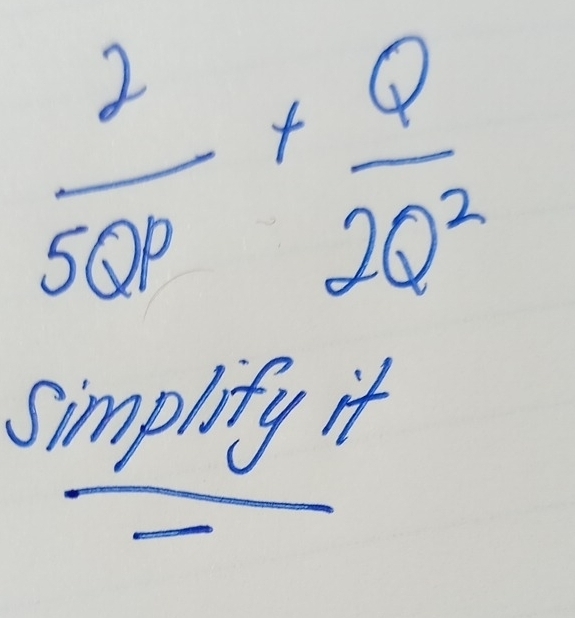 2/5QP + Q/2Q²
Simplify it